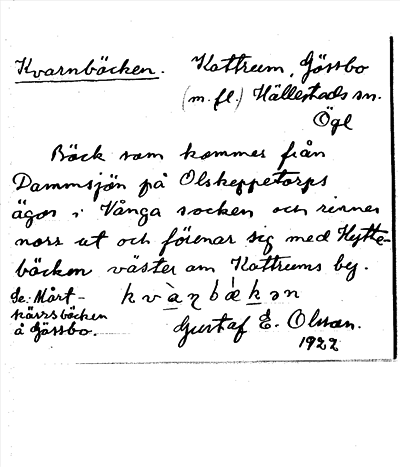 Kvarnbäcken. Kattrum, Gössbo
(m.fl.) Hällestads sn.
Ögl
Bäck som kommer från
Dammsjön på Olskeppetorps
ägor i Vånga socken och rinner
norr ut och förenar sig med Hytte-
bäcken väster om Kattrums by.
Se. Mårt-
kärrsbäcken
å Gössbo.
kvàṇbækən
Gustaf E. Olsson.
1922